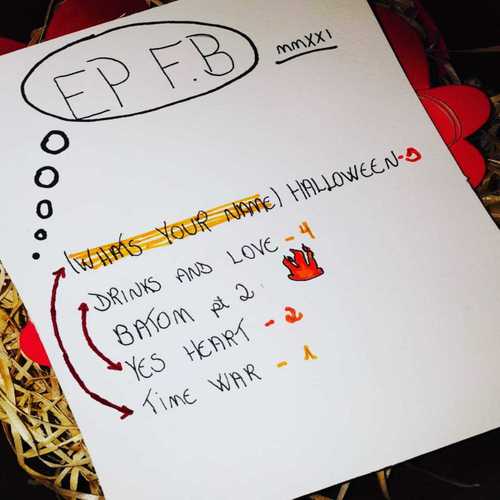 EP F.B
MMXXI
(WHA'S YOUR NAME) HALLOWEEN - 5
DRINKS AND LOVE - 4
BATOM pt 2
YES HEART - 2
TIME WAR - 1